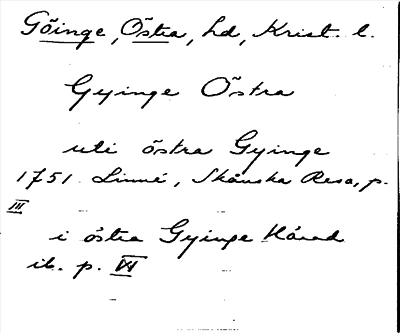 Göinge, Östra, hd, Krist. l.
Gyinge Östra
uti östra Gyinge
1751 Linné, Skånska Resa, p.
III
i östra Gyinge Härad
ib. p. VI